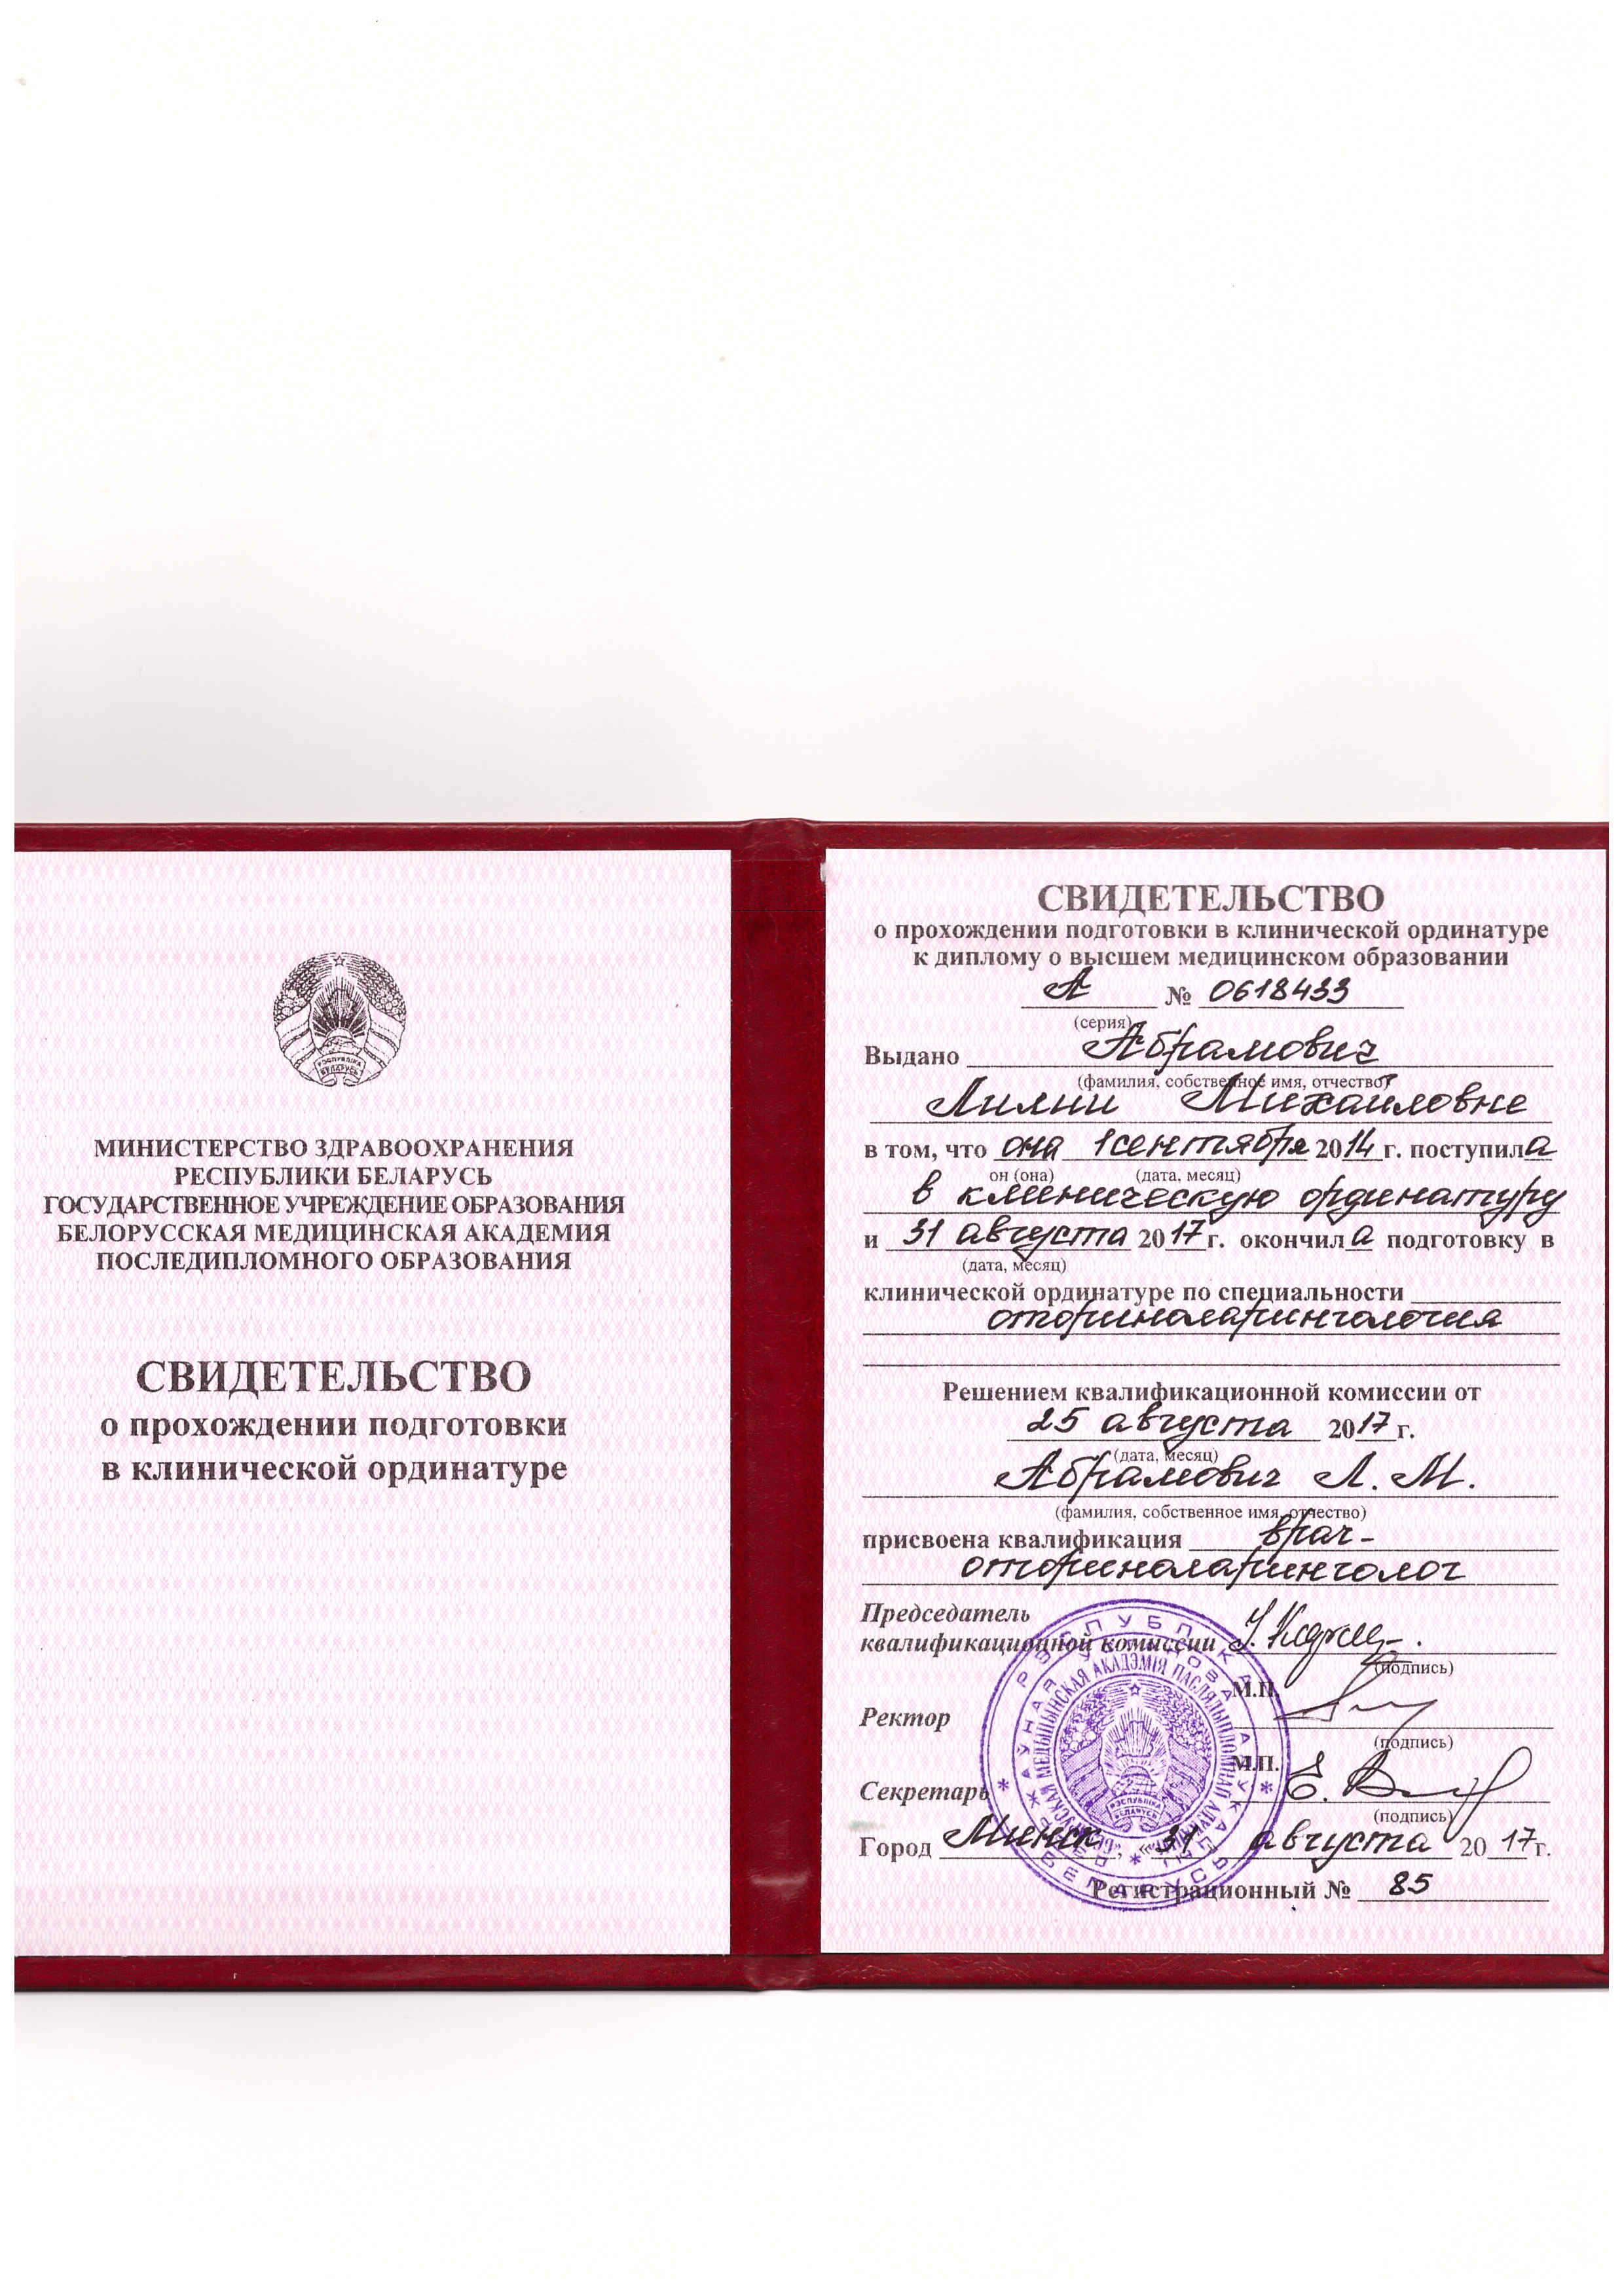 РЭСПУБЛІКА
БЕЛАРУСЬ
МИНИСТЕРСТВО ЗДРАВООХРАНЕНИЯ
РЕСПУБЛИКИ БЕЛАРУСЬ
ГОСУДАРСТВЕННОЕ УЧРЕЖДЕНИЕ ОБРАЗОВАНИЯ
БЕЛОРУССКАЯ МЕДИЦИНСКАЯ АКАДЕМИЯ
ПОСЛЕДИПЛОМНОГО ОБРАЗОВАНИЯ
СВИДЕТЕЛЬСТВО
о прохождении подготовки
в клинической ординатуре
СВИДЕТЕЛЬСТВО
о прохождении подготовки в клинической ординатуре
к диплому о высшем медицинском образовании
А № 0618433
(серия)
Выдано Абрамович
(фамилия, собственное имя, отчество)
Лилии Михайловне
в том, что она 1 сентября 2014 г. поступила
он (она) (дата, месяц)
в клиническую ординатуру
и 31 августа 2017 г. окончила подготовку в
(дата, месяц)
клинической ординатуре по специальности
оториноларингология
Решением квалификационной комиссии от
25 августа 2017 г.
(дата, месяц)
Абрамович Л. М.
(фамилия, собственное имя, отчество)
присвоена квалификация врач-
оториноларинголог
Председатель
квалификационной комиссии
(подпись)
М.П.
Ректор
(подпись)
М.П.
Секретарь
(подпись)
Город Минск, 31 августа 2017 г.
Регистрационный № 85
РЭСПУБЛІКА БЕЛАРУСЬ
МЕДЫЦЫНСКАЯ АКАДЭМІЯ ПАСЛЯДЫПЛОМНАЙ АДУКАЦЫІ
РЭСПУБЛІКА
БЕЛАРУСЬ